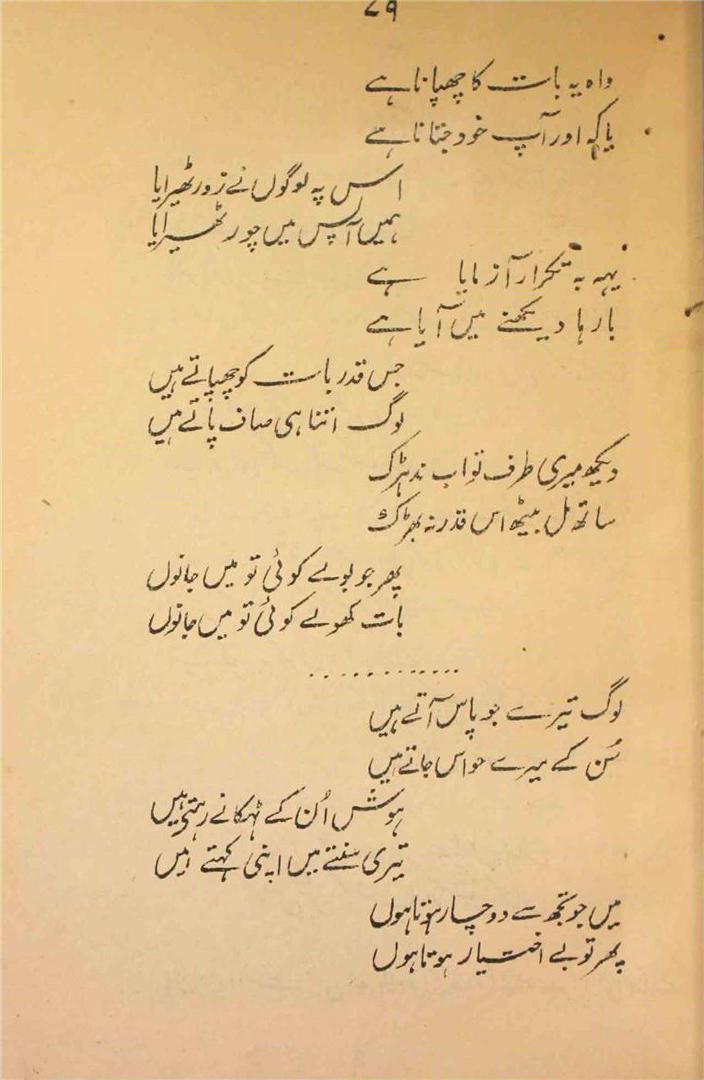 ۷۹
واہ یہ بات کا چھپانا ہے
یا کہ اور آپ خود جتانا ہے
اس پہ لوگوں نے زور ٹھیرایا
ہمیں آپس میں چور ٹھیرایا
یہہ بہ تکرار آزمایا ہے
بارہا دیکھنے میں آیا ہے
جس قدر بات کو چھپاتے ہیں
لوگ اتنا ہی صاف پاتے ہیں
دیکھ میری طرف تو اب ندہڑک
ساتھ مل بیٹھ اس قدر نہ بھڑک
پھر جو بولے کوئی تو میں جانوں
بات کھولے کوئی تو میں جانوں
............
لوگ تیرے جو پاس آتے ہیں
سُن کے میرے حواس جاتے ہیں
ہوش اُن کے ٹہکانے رہتے ہیں
تیری سنتے ہیں اپنی کہتے ہیں
میں جو تجھ سے دوچار ہوتا ہوں
پھر تو بے اختیار ہوتا ہوں